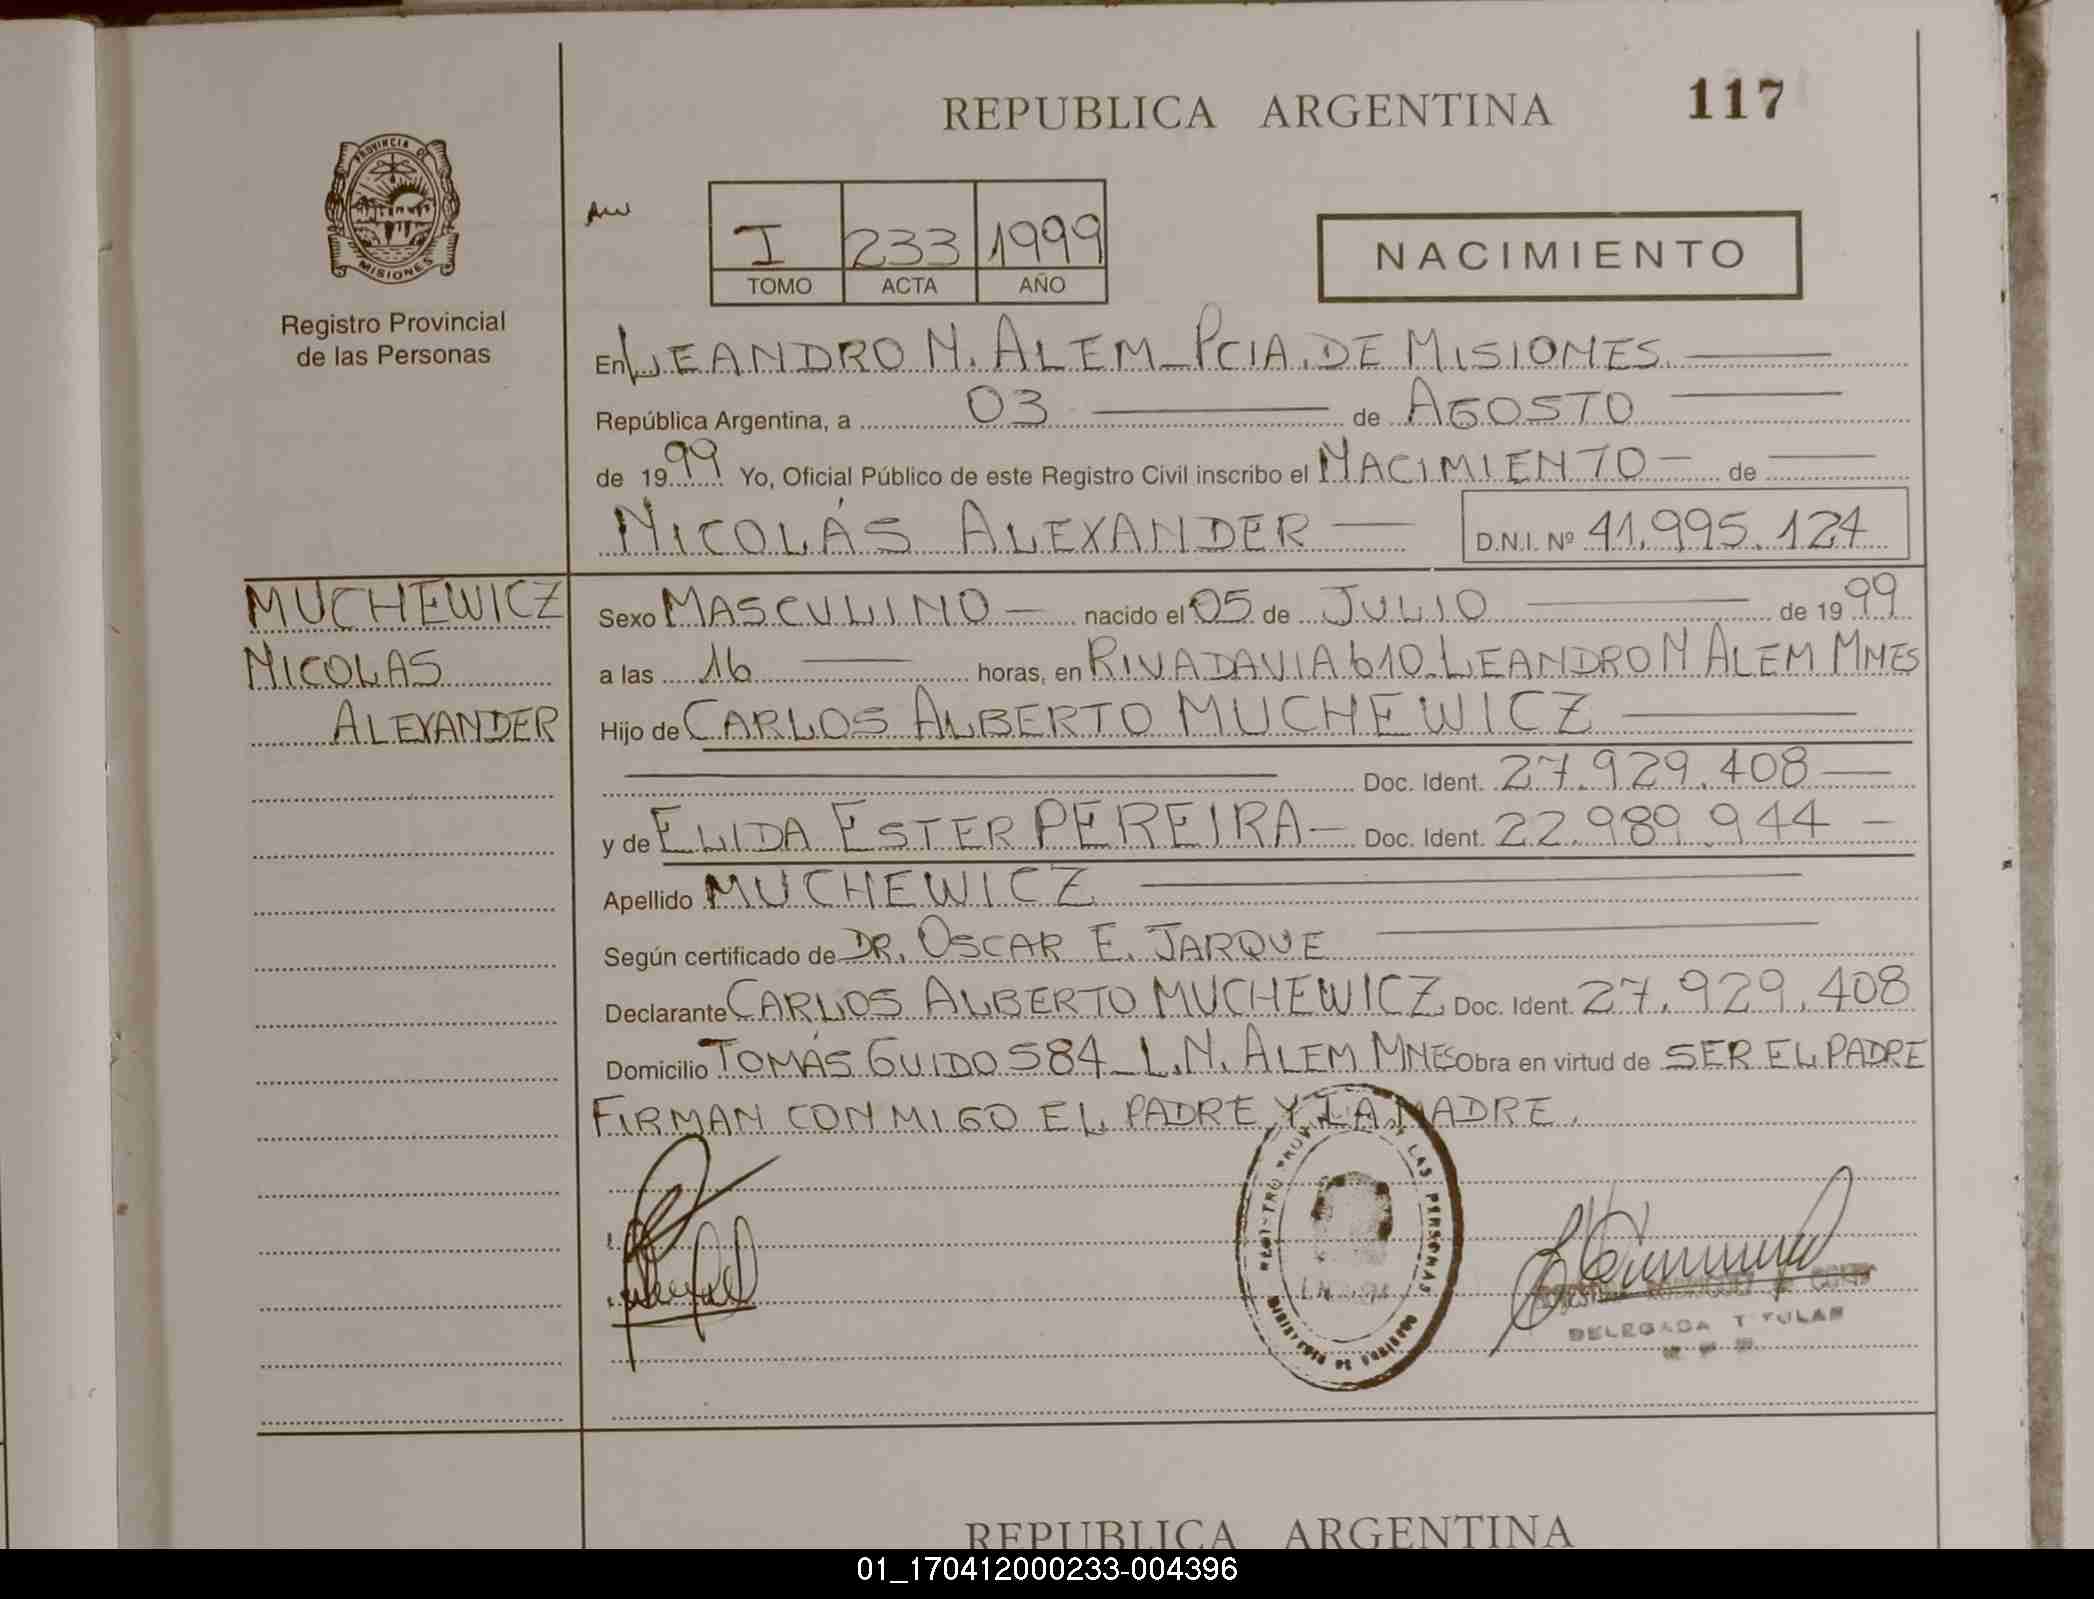 REPUBLICA ARGENTINA
117
PROVINCIA DE
MISIONES
Registro Provincial
de las Personas
I 233 1999
TOMO ACTA AÑO
NACIMIENTO
En LEANDRO N. ALEM - PCIA. DE MISIONES.
República Argentina, a 03 de AGOSTO
de 1999 Yo, Oficial Público de este Registro Civil inscribo el NACIMIENTO - de
NICOLÁS ALEXANDER D.N.I. Nº 41.995.124
MUCHEWICZ
NICOLAS
ALEXANDER
Sexo MASCULINO nacido el 05 de JULIO de 1999
a las 16 horas, en RIVADAVIA 610 - LEANDRO N ALEM MNES
Hijo de CARLOS ALBERTO MUCHEWICZ
Doc. Ident. 27.929.408
y de ELIDA ESTER PEREIRA - Doc. Ident. 22.989.944 -
Apellido MUCHEWICZ
Según certificado de DR. OSCAR E. JARQUE
Declarante CARLOS ALBERTO MUCHEWICZ Doc. Ident. 27.929.408
Domicilio TOMÁS GUIDO 584 - L.N. ALEM MNES Obra en virtud de SER EL PADRE
FIRMAN CONMIGO EL PADRE Y LA MADRE.
REGISTRO PROVINCIAL DE LAS PERSONAS
MINISTERIO DE GOBIERNO
DELEGADA TITULAR
REPUBLICA ARGENTINA
01_170412000233-004396